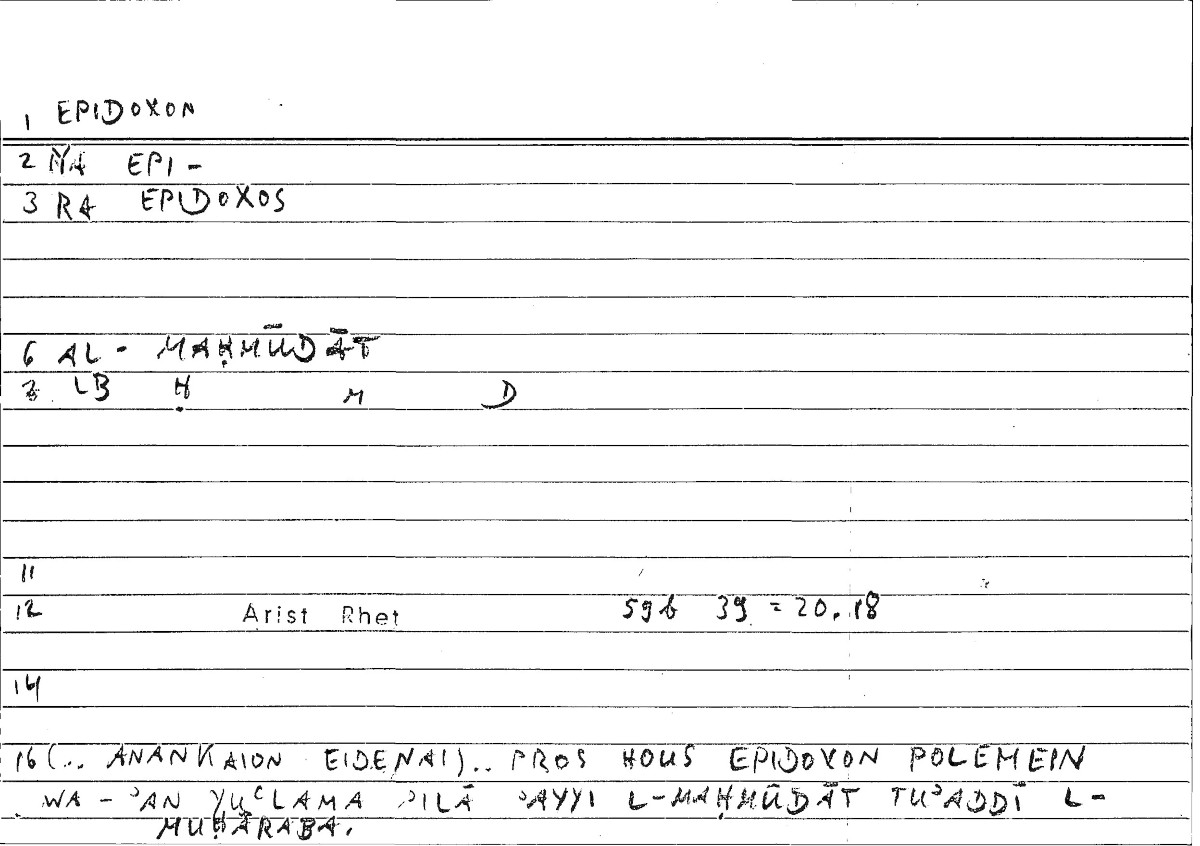 1 EPIDOXON
2 NA EPI -
3 RA EPIDOXOS
6 AL - MAḤMŪDĀT
7 LB Ḥ M D
11
12 Arist Rhet 59b 39 = 20.18
14
16 (.. ANANKAION EIDENAI).. PROS HOUS EPIDOXON POLEMEIN
WA - ʾAN YUʿLAMA ʾILĀ ʾAYYI L-MAḤMŪDĀT TUʾADDĪ L-
MUḤĀRABA.